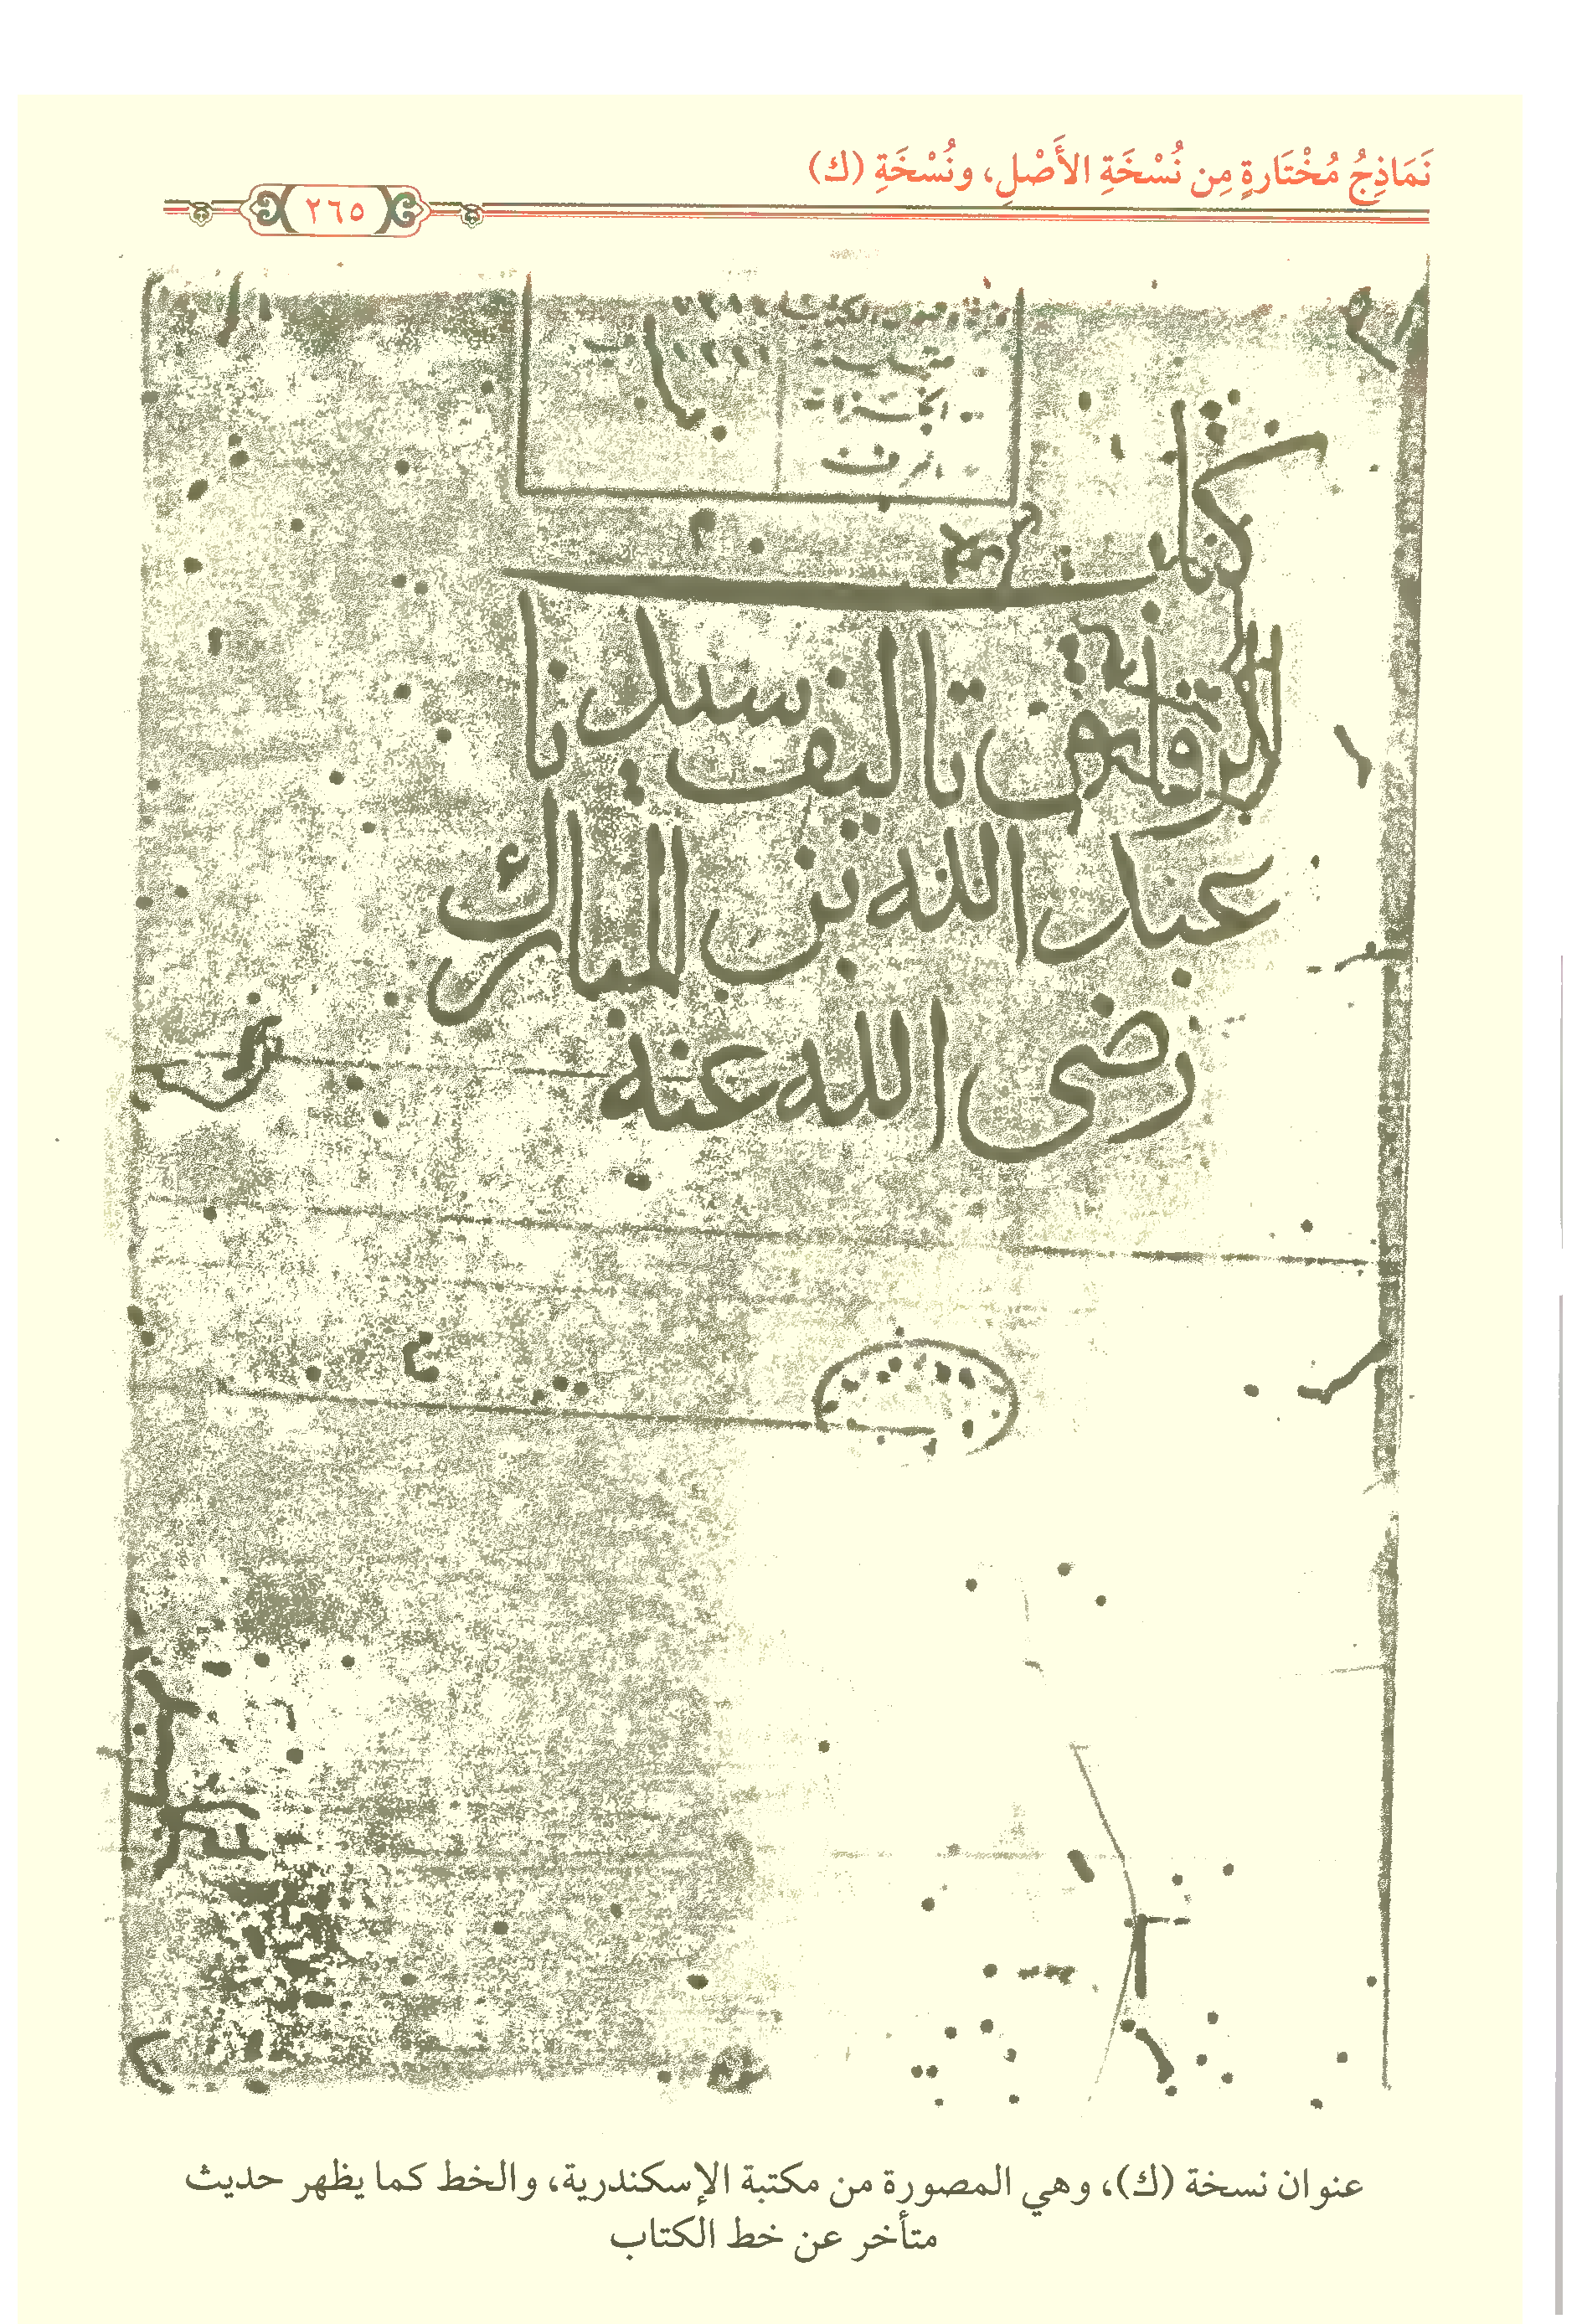 نَمَاذِجُ مُخْتَارةٍ مِن نُسْخَةِ الأَصْلِ، ونُسْخَةِ (ك)
٢٦٥
كتاب
الرقائق تاليف سيدنا
عبد الله بن المبارك
رضى الله عنه
عنوان نسخة (ك)، وهي المصورة من مكتبة الإسكندرية، والخط كما يظهر حديث
متأخر عن خط الكتاب